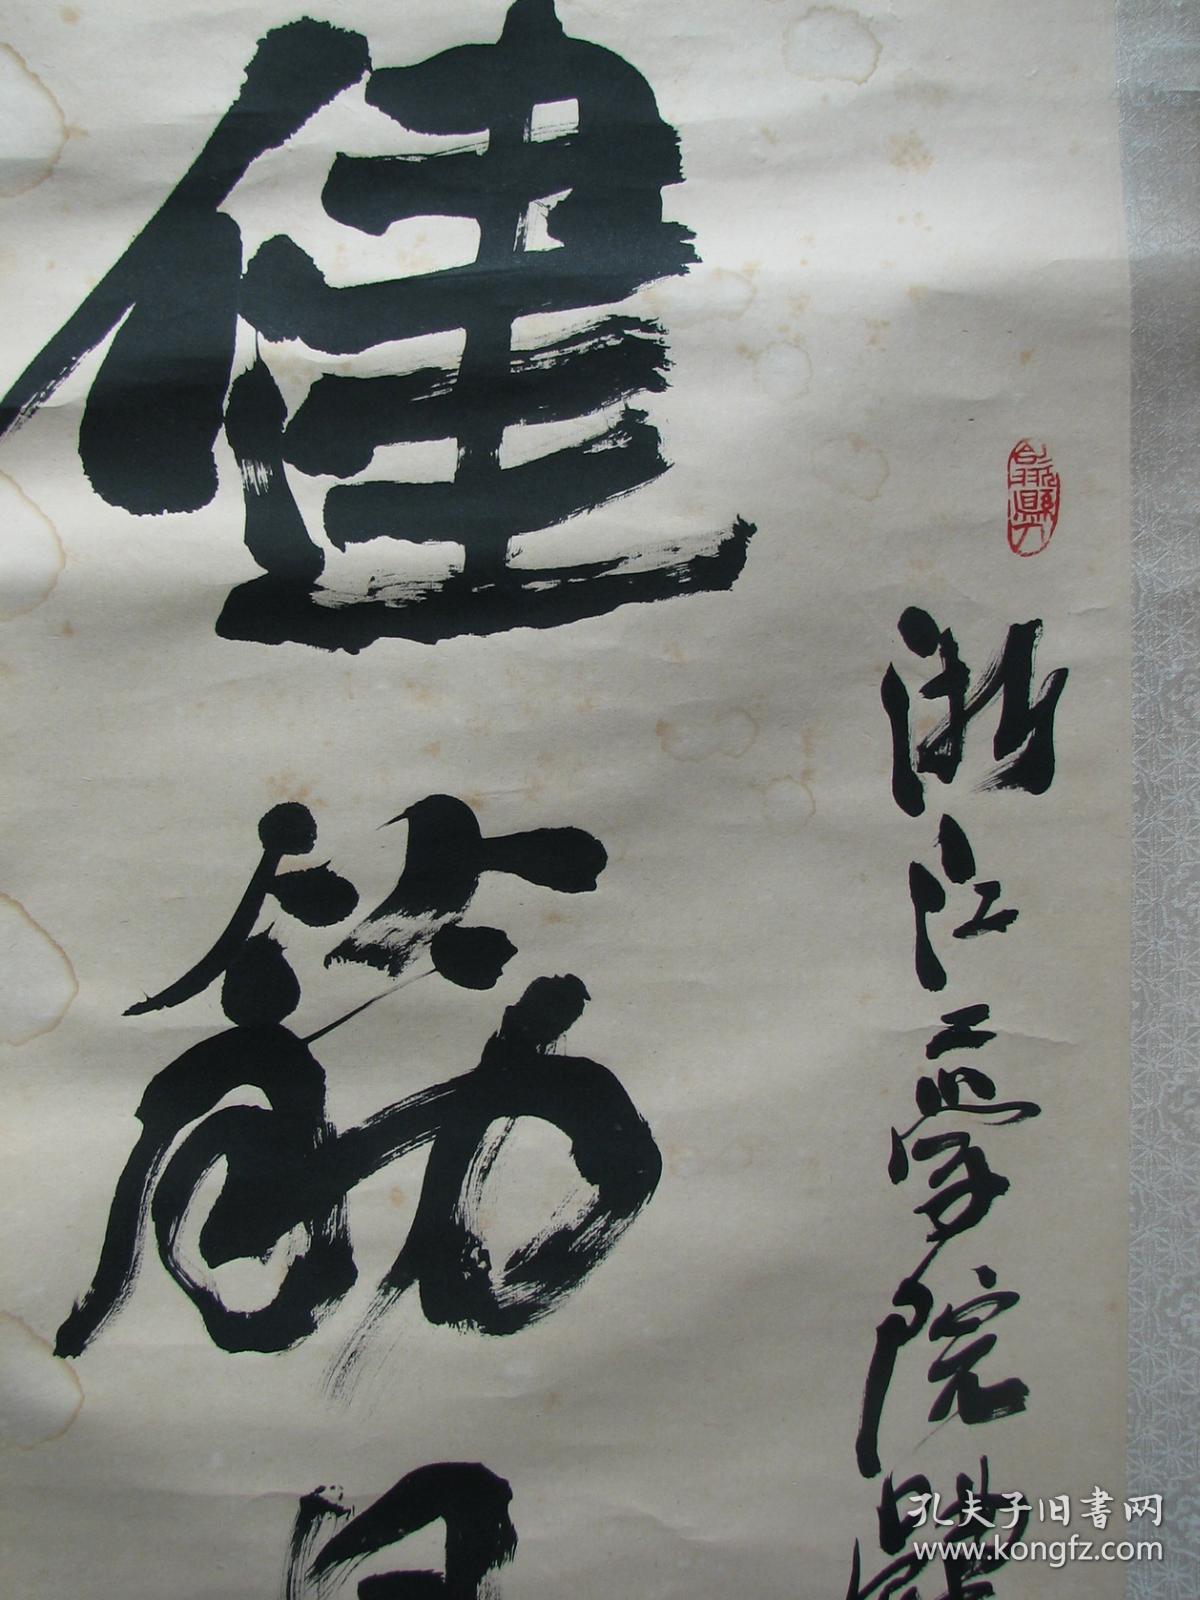 浙江工学院
健筋
孔夫子旧书网
www.kongfz.com